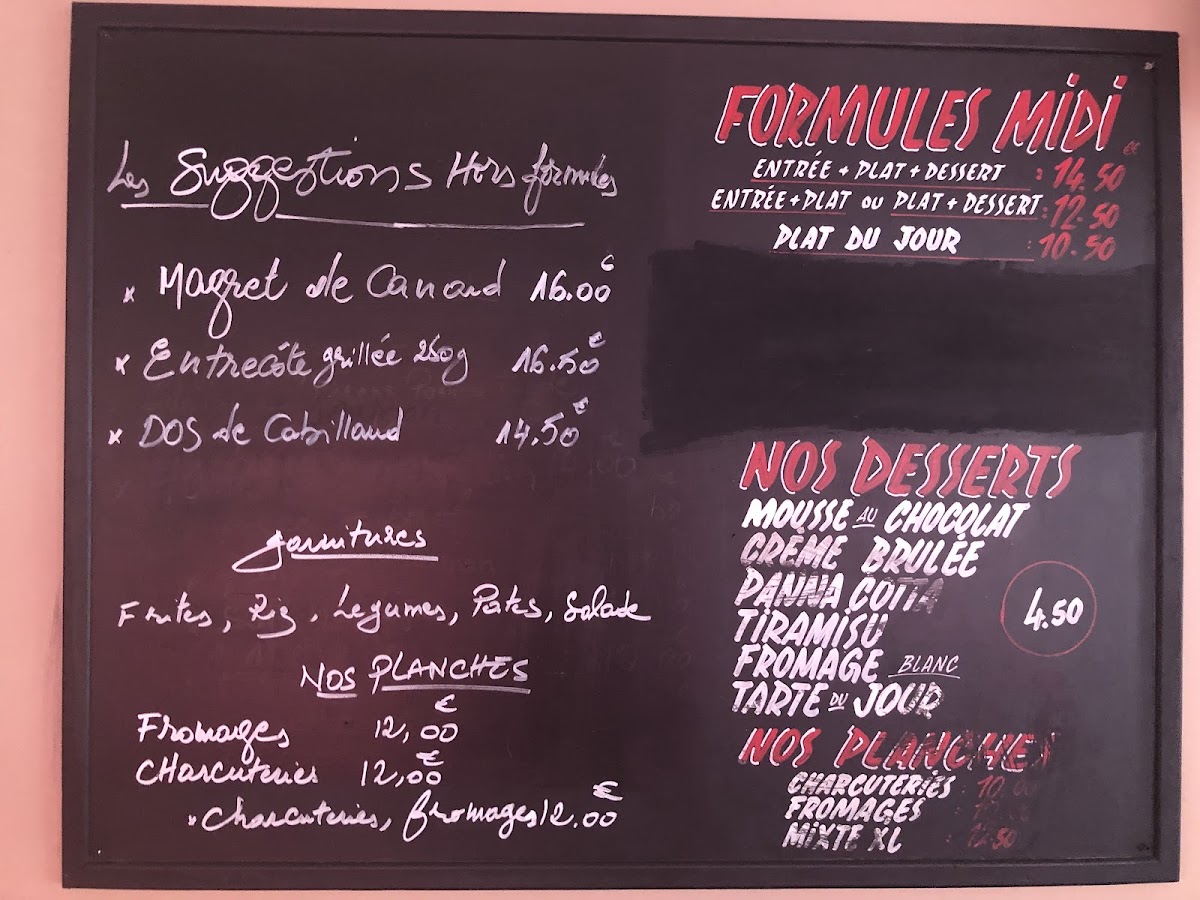 Les Suggestions Hors formules
x Magret de Canard 16.00€
x Entrecôte grillée 250g 16.50€
x DOS de Cabillaud 14.50€
garnitures
Frites, Riz, Legumes, Pates, Salade
NOS PLANCHES
Fromages 12,00€
CHarcuteries 12,00€
x Charcuteries, fromages 12.00€
FORMULES MiDi
ENTRÉE + PLAT + DESSERT : 14.50
ENTRÉE + PLAT OU PLAT + DESSERT : 12.50
PLAT DU JOUR : 10.50
NOS DESSERTS
MOUSSE AU CHOCOLAT
CRÈME BRULÉE
PANNA COTTA
TIRAMISU
FROMAGE BLANC
TARTE DU JOUR
4.50
NOS PLANCHES
CHARCUTERIES 10.00
FROMAGES
MiXTE XL